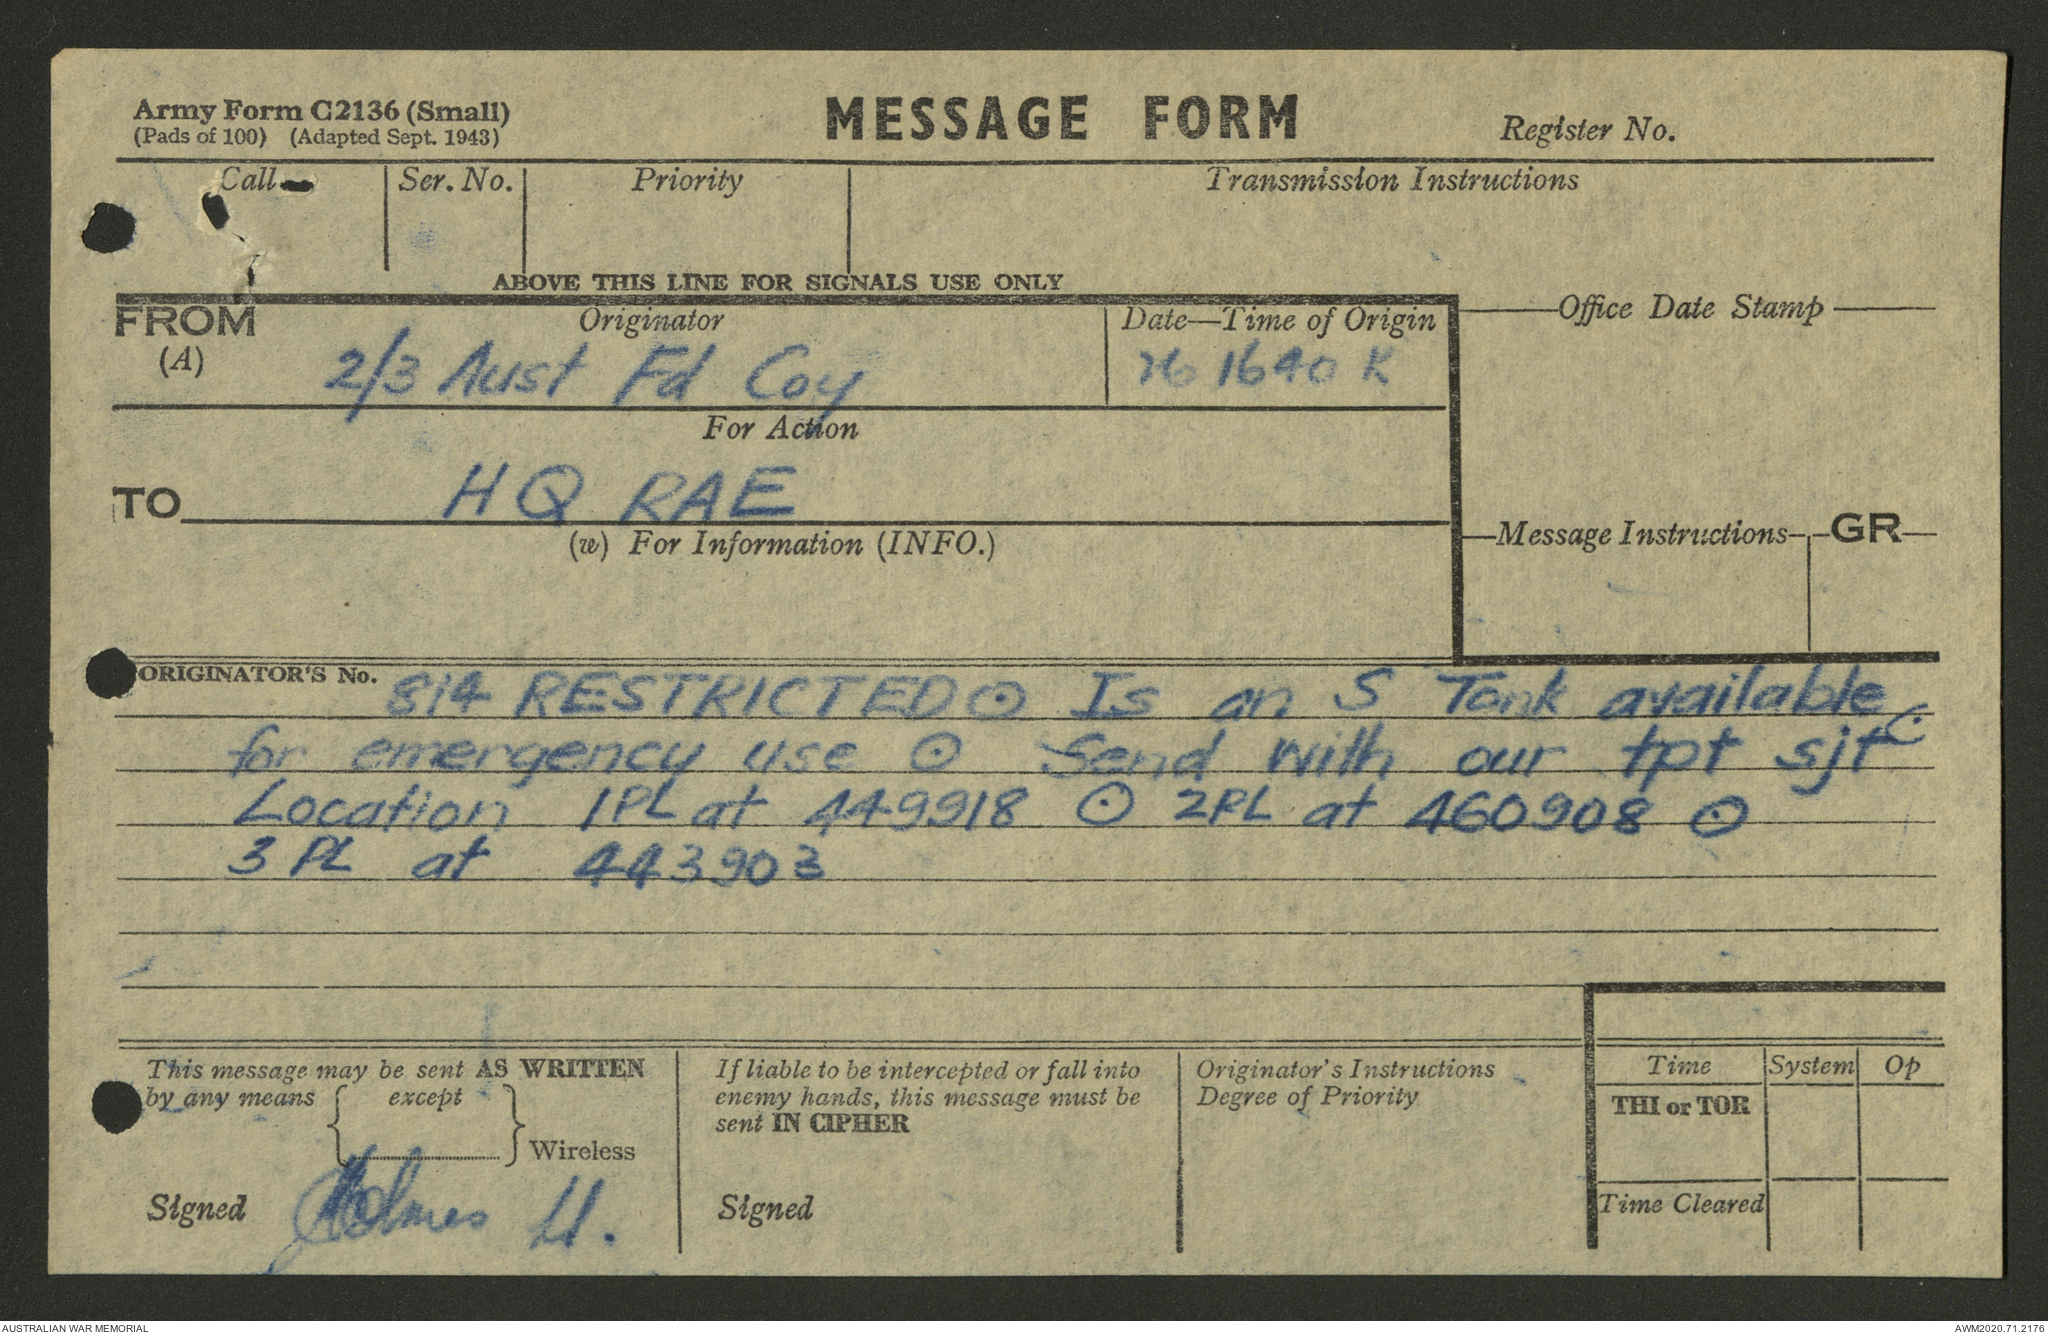 Army Form C2136 (Small)
(Pads of 100) (Adapted Sept. 1943)
MESSAGE FORM
Register No.
Call
Ser. No.
Priority
Transmission Instructions
ABOVE THIS LINE FOR SIGNALS USE ONLY
FROM
(A)
Originator
2/3 Aust Fd Coy
Date—Time of Origin
261640 K
Office Date Stamp
For Action
TO
HQ RAE
(w) For Information (INFO.)
Message Instructions
GR
ORIGINATOR'S No.
814 RESTRICTED ⊙ Is an S Tank available
for emergency use ⊙ Send with our tpt sjt ⊙
Location 1PL at 449918 ⊙ 2PL at 460908 ⊙
3 PL at 443903
This message may be sent AS WRITTEN
by any means { except } Wireless
Signed
Holmes Lt.
If liable to be intercepted or fall into
enemy hands, this message must be
sent IN CIPHER
Signed
Originator's Instructions
Degree of Priority
Time System Op
THI or TOR
Time Cleared
AUSTRALIAN WAR MEMORIAL
AWM2020.71.2176